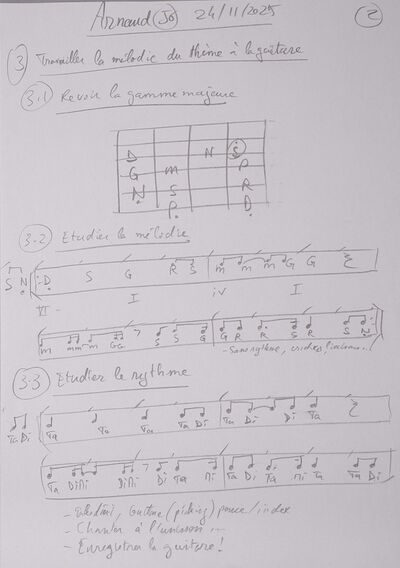 Arnaud (Jo) 24/11/2025 (2)
(3) Travailler la mélodie du thème à la guitare
(3.1) Revoir la gamme majeure
D N S
G m P
N S R
P D
(3-2) Etudier la mélodie
S N D S G R S m m m G G
VI - I IV I
m m m m G G S S G G R R S R S N
- Sans rythme,
(3-3) Etudier le rythme
Ta Di Ta Ta Ta Ta Di Ta Di Di Ta
Ta Di Ni Di Ni Di Ta Ni Ta Di Ta Ni Ta Ta Di
- Guitare (picking) pouce/index
- Chanter à l'unisson ...
- Enregistrer la guitare !